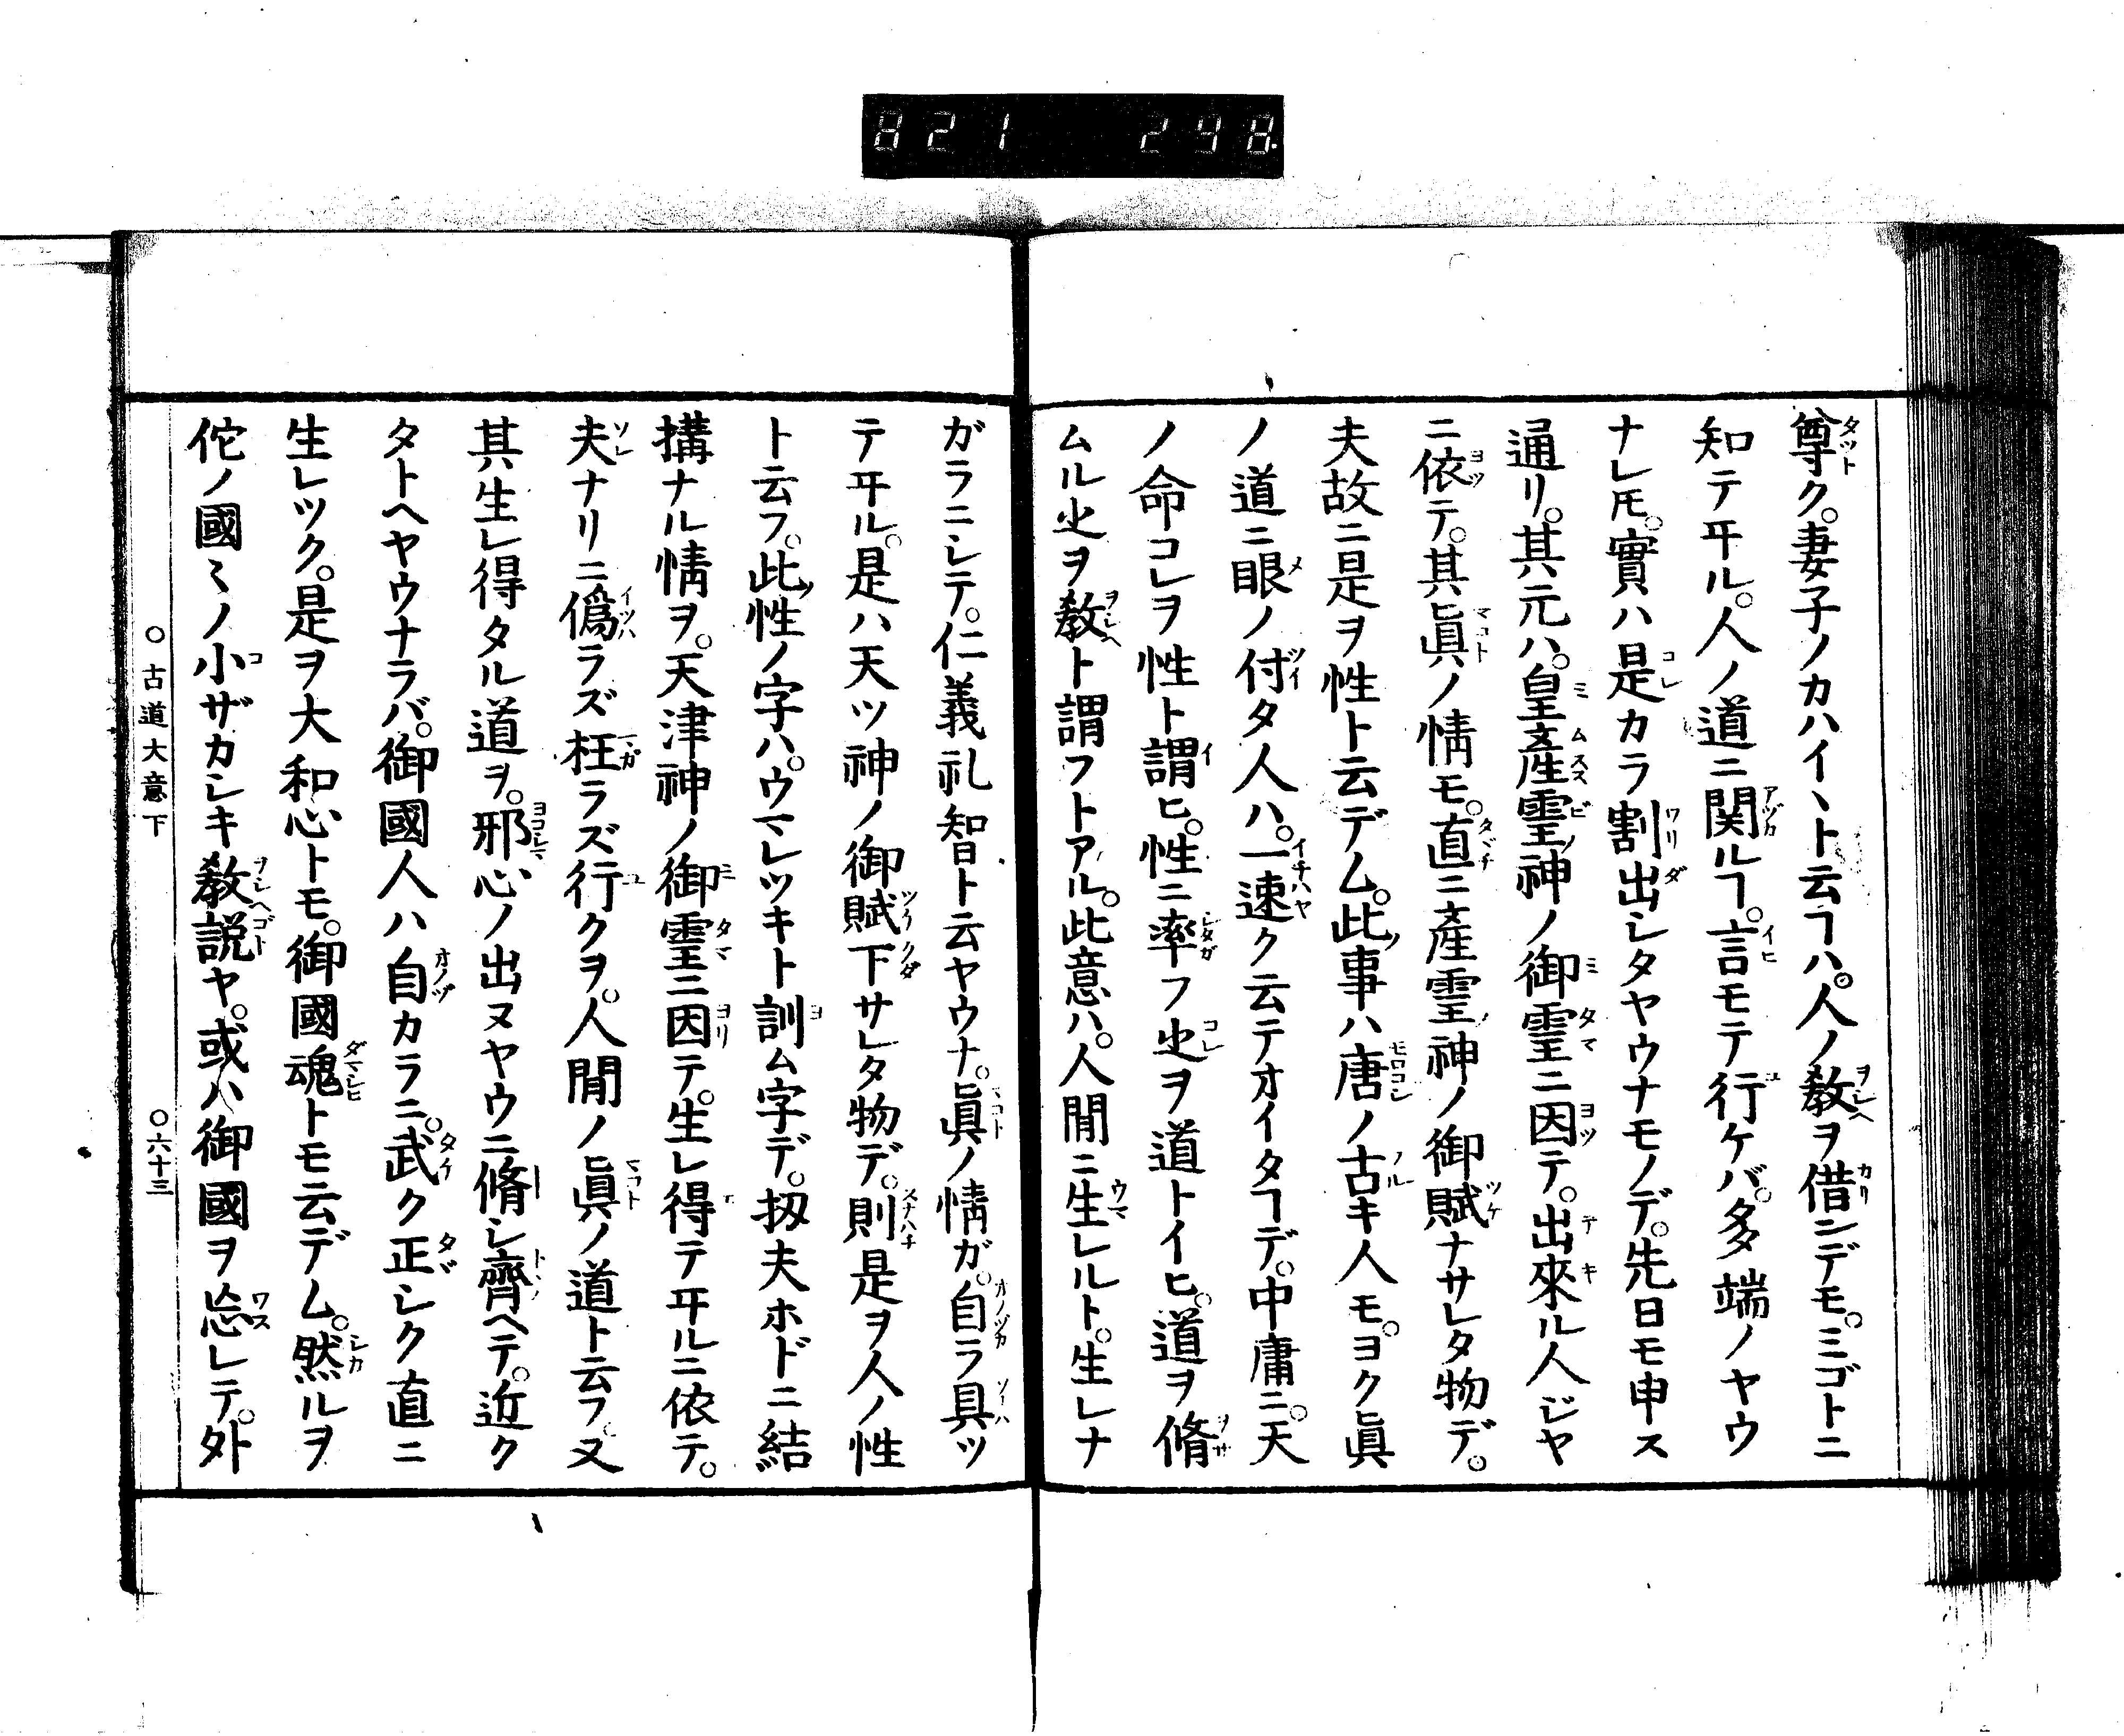 821 248.
尊ク。妻子ノカハイヽト云ヿハ。人ノ教ヲ借ンデモ。ミゴトニ
知テヰル。人ノ道ニ関ルヿ。言モテ行ケバ。多端ノヤウ
ナレ𪜈。實ハ是カラ割出シタヤウナモノデ。先日モ申ス
通リ。其元ハ。皇産靈神ノ御靈ニ因テ。出來ル人ジヤ
ニ依テ。其眞ノ情モ。直ニ産靈神ノ御賦ナサレタ物デ。
夫故ニ是ヲ性ト云デム。此事ハ唐ノ古キ人モ。ヨク眞
ノ道ニ眼ノ付タ人ハ。一速ク云テオイタヿデ。中庸ニ。天
ノ命コレヲ性ト謂ヒ。性ニ率フ㞢ヲ道トイヒ。道ヲ脩
ムル㞢ヲ教ト謂フトアル。此意ハ。人閒ニ生レルト。生レナ
ガラニシテ。仁義礼智ト云ヤウナ。眞ノ情ガ。自ラ具ツ
テヰル。是ハ天ツ神ノ御賦下サレタ物デ。則是ヲ人ノ性
ト云フ。此性ノ字ハ。ウマレツキト訓ム字デ。扨夫ホドニ結
搆ナル情ヲ。天津神ノ御靈ニ因テ。生レ得テヰルニ依テ。
夫ナリニ僞ラズ枉ラズ行クヲ。人閒ノ眞ノ道ト云フ。又
其生レ得タル道ヲ。邪心ノ出ヌヤウニ脩シ齊ヘテ。近ク
タトヘヤウナラバ。御國人ハ自カラニ。武ク正シク直ニ
生レツク。是ヲ大和心トモ。御國魂トモ云デム。然ルヲ
佗ノ國〻ノ小ザカシキ教説ヤ。或ハ御國ヲ忘レテ。外
○古道大意下 ○六十三